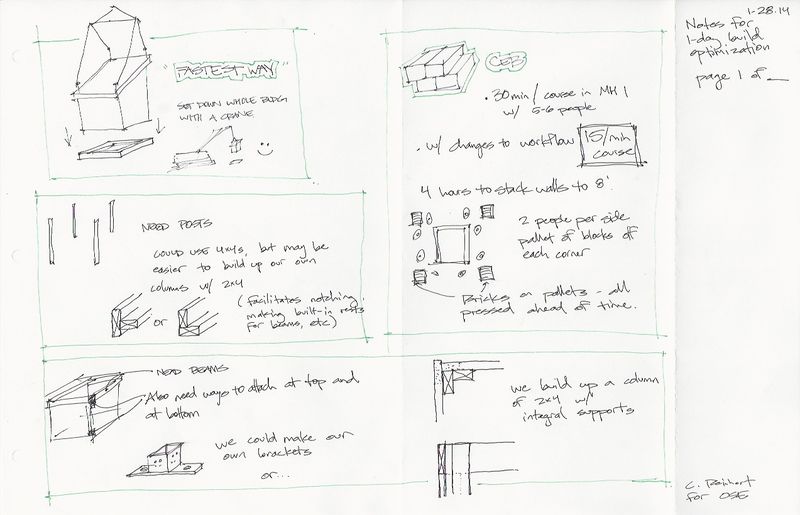 1-28.14
Notes for
1-day build
optimization
page 1 of __
"FASTEST WAY"
SET DOWN WHOLE BLDG
WITH A CRANE.
CEB
• 30 min / course in MH 1
w/ 5-6 people
• w/ changes to workflow
15/min
course
4 hours to stack walls to 8'.
2 people per side
pallet of blocks off
each corner
Bricks on pallets - all
pressed ahead of time.
NEED POSTS
COULD USE 4x4s, but may be
easier to build up our own
columns w/ 2x4
or
(facilitates notching,
making built-in rests
for beams, etc)
NEED BEAMS
Also need ways to attach at top and
at bottom
we could make our
own brackets
or...
we build up a column
of 2x4 w/
integral supports
C. Reinhart
for OSE